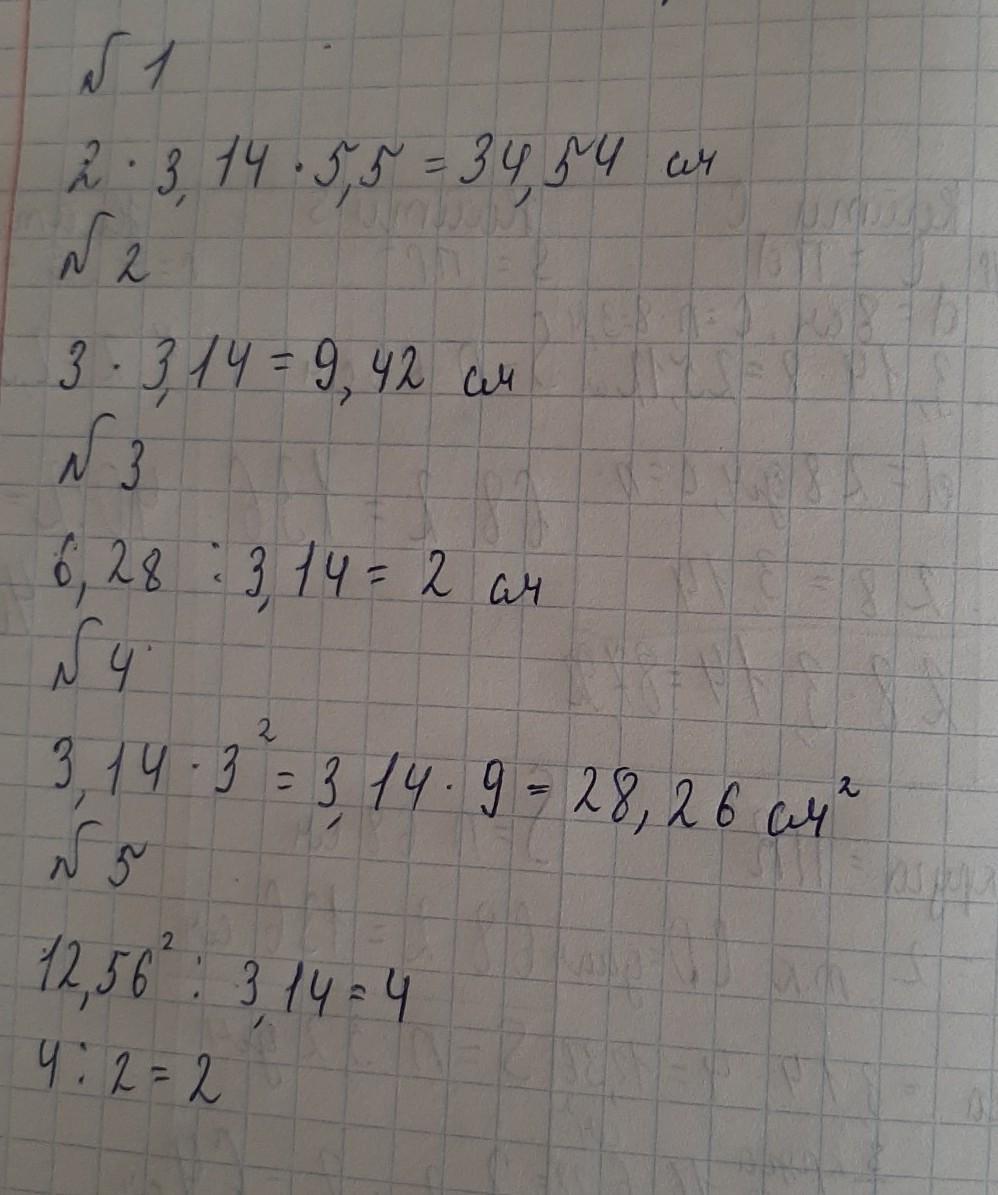 № 1
2 · 3,14 · 5,5 = 34,54 см
№ 2
3 · 3,14 = 9,42 см
№ 3
6,28 : 3,14 = 2 см
№ 4
3,14 · 3² = 3,14 · 9 = 28,26 см²
№ 5
12,56² : 3,14 = 4
4 : 2 = 2